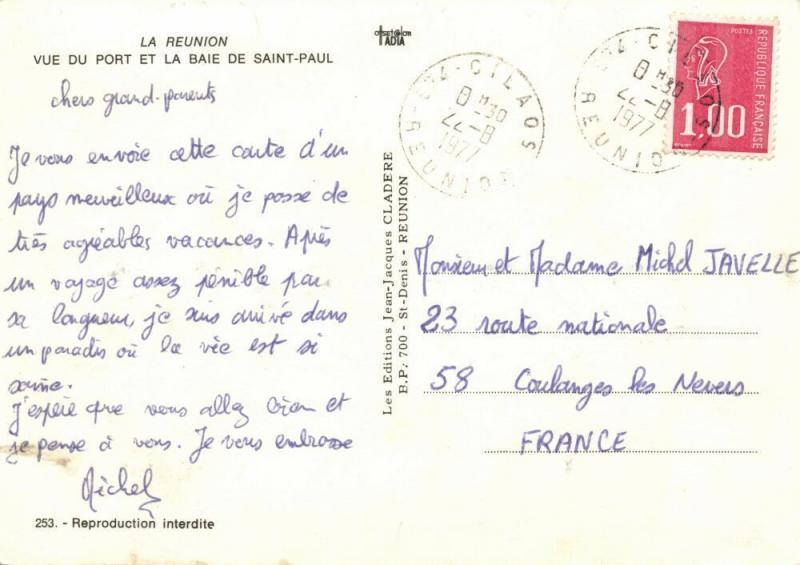 LA REUNION
VUE DU PORT ET LA BAIE DE SAINT-PAUL
chers grand-parents
Je vous envoie cette carte d'un
pays merveilleux où je passe de
très agréables vacances. Après
un voyage assez pénible par
sa longueur, je suis arrivé dans
un paradis où la vie est si
saine.
J'espère que vous allez bien et
je pense à vous. Je vous embrasse
Michel
253. - Reproduction interdite
Les Editions Jean-Jacques CLADERE
B.P.: 700 - St-Denis - REUNION
offset@lon
TADIA
974-CILAOS
8H30
22-8
1977
REUNION
974-CILAOS
8H30
22-8
1977
REUNION
POSTES
RÉPUBLIQUE FRANÇAISE
1,00
Monsieur et Madame Michel JAVELLE
23 route nationale
58 Coulanges les Nevers
FRANCE